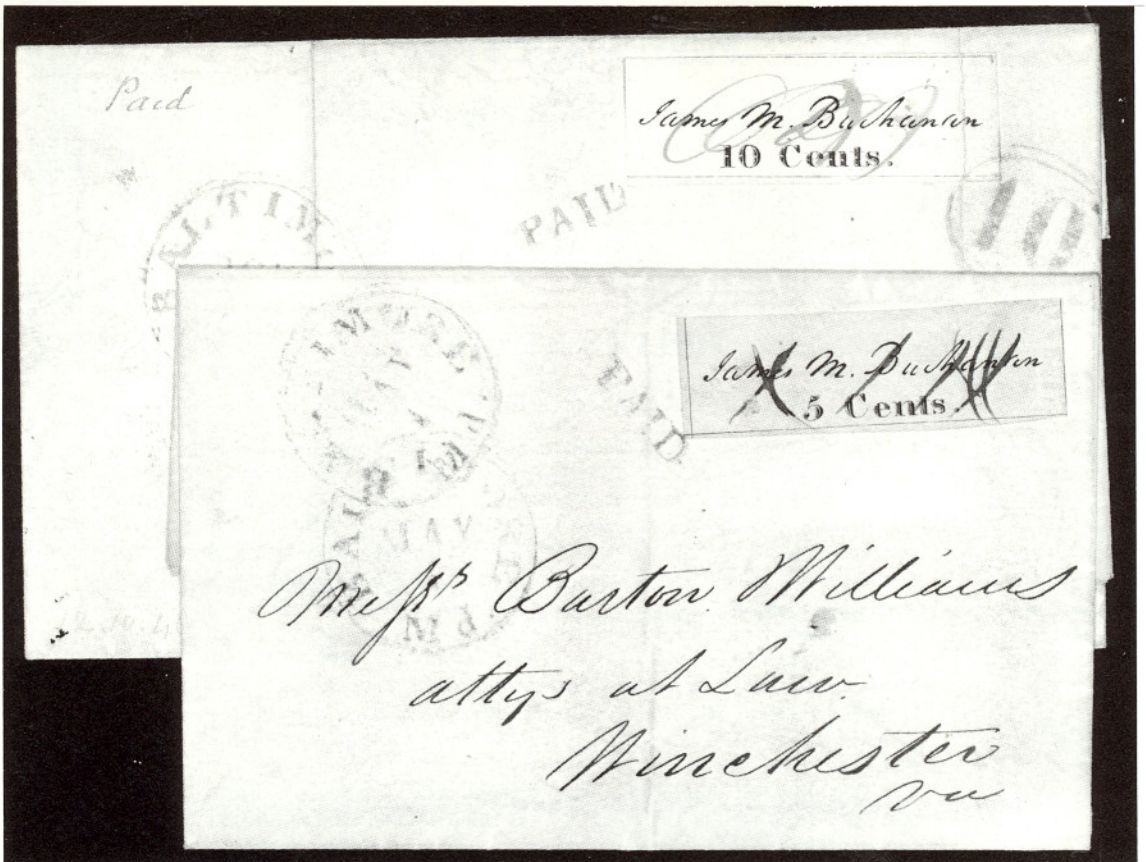 Paid
James M. Buchanan
10 Cents.
PAID
10
BALTIM
James M. Buchanan
5 Cents.
TIMORE
MAY
PAID
MAY
Messrs Barton Williams
attys at Law
Winchester
Va